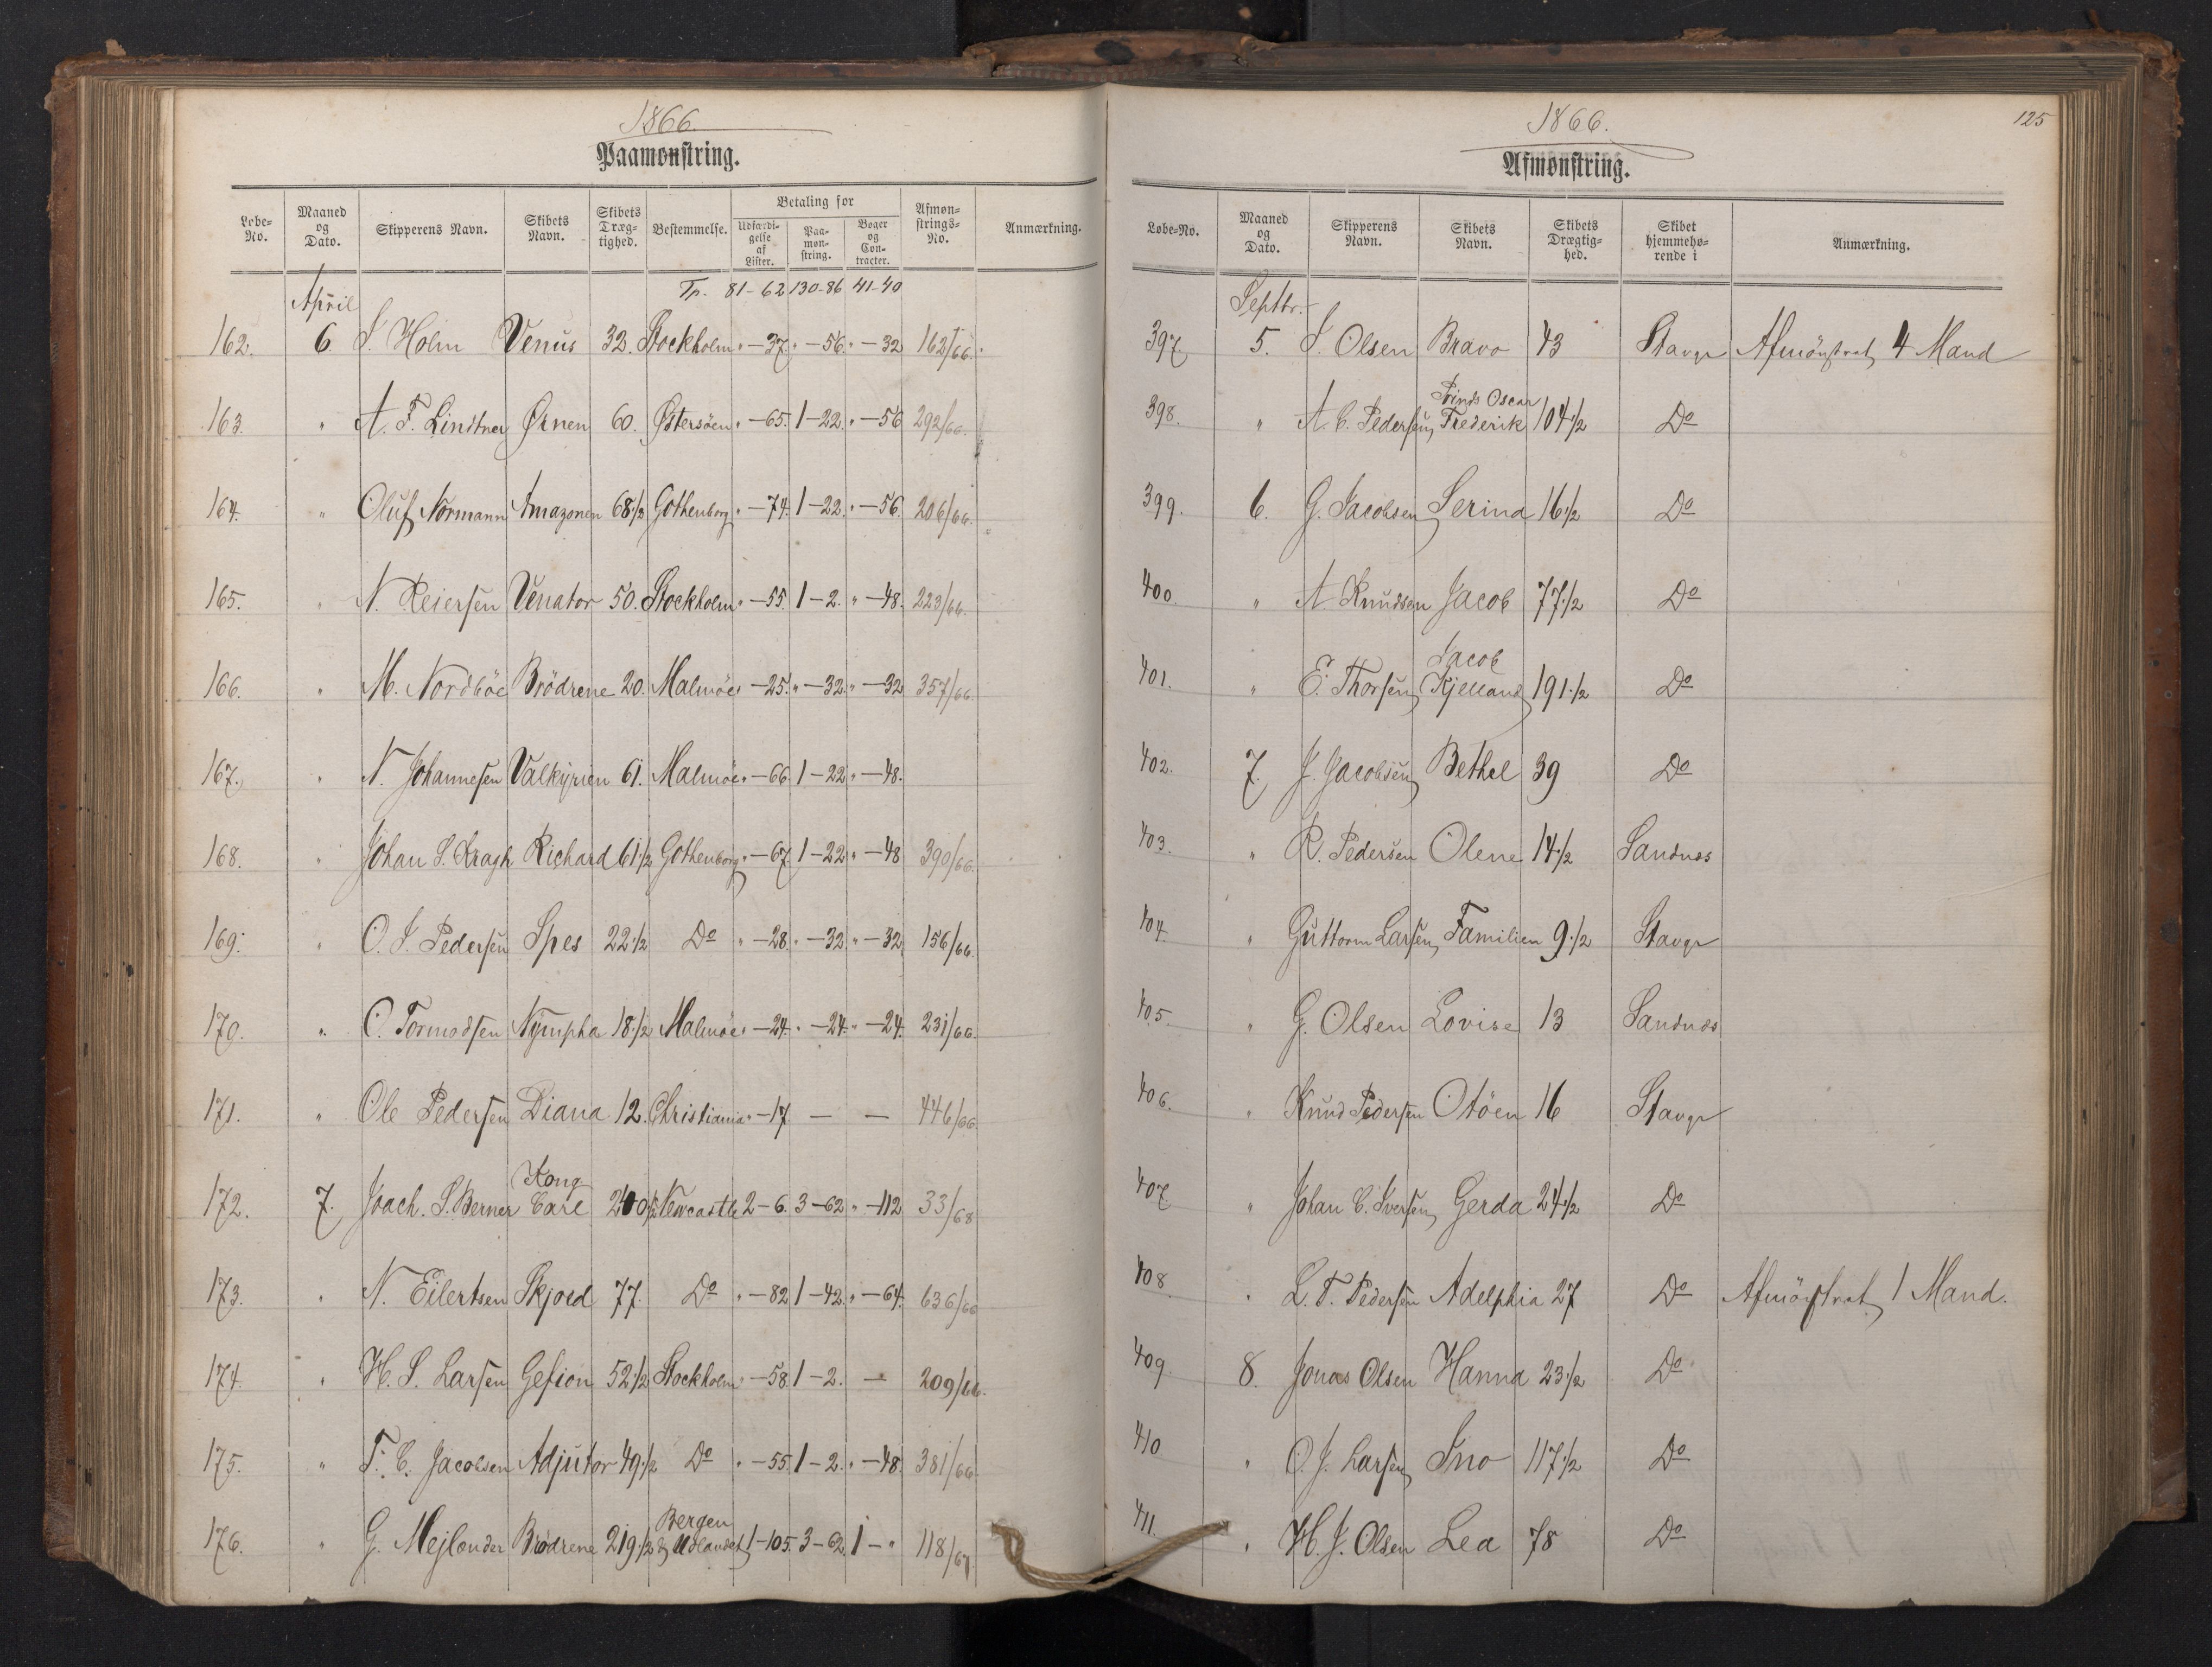 1866.
Paamønstring.
Løbe-No. | Maaned og Dato. | Skipperens Navn. | Skibets Navn. | Skibets Dræg-tighed. | Bestemmelse. | Betaling for | Udfærdi-gelse af Lister. | Paa-møn-string. | Bøger og Con-tracter. | Afmøn-strings-No. | Anmærkning.
Tr. 81-62 130-86 41-40
April
162. 6. S. Holm Venus 32. Stockholm " -37. " -56. " -32 162/66.
163. " A. F. Lindtner Ørnen 60. Østersöen " -65. 1-22. " -56 292/66.
164. " Oluf Normann Amazonen 68 1/2 Gothenborg " -74. 1-22. " -56. 206/66.
165. " N. Reiersen Venator 50. Stockholm " -55. 1-2. " -48. 223/66.
166. " M. Nordböe Brödrene 20. Malmöe " -25. " -32. " -32 357/66.
167. " N. Johannesen Valkyrien 61. Malmöe " -66. 1-22 " -48.
168. " Johan S. Kragh Richard 61 1/2 Gothenborg " -67. 1-22 " -48 390/66.
169. " O. J. Pedersen Spes 22 1/2 Do " -28. " -32 " -32. 156/66.
170. " O. Tormodsen Nympha 18 1/2 Malmöe " -24. " -24. " -24. 231/66.
171. " Ole Pedersen Diana 12. Christiania " -17. — — 446/66.
Kong
172. 7. Joach. S. Berner Carl 200 1/2 Newcastle 2-6. 3-62 " -112 33/68
173. " N. Eilertsen Skjold 77. Do " -82 1-42. " -64. 636/66
174. " H. S. Larsen Gefion 52 1/2 Stockholm " -58. 1-2. — 209/66.
175. " T. C. Jacobsen Adjutor 49 1/2 Do " -55. 1-2. " -48. 381/66.
Bergen
176. " G. Mejlonder Brödrene 219 1/2 & Udlandet 1-105. 3-62. 1-" 118/67.
1866.
125
Afmønstring.
Løbe-No. | Maaned og Dato. | Skipperens Navn. | Skibets Navn. | Skibets Drægtig-hed. | Skibet hjemmehø-rende i | Anmærkning.
Septbr.
397. 5. S. Olsen Bravo 43 Stavgr Afmönstret 4 Mand
Prinds Oscar
398. " A. C. Pedersen Frederik 104 1/2 Do
399. 6. G. Jacobsen Serina 16 1/2 Do
400. " A. Knudsen Jacob 77 1/2 Do
Jacob
401. " E. Thorsen Kjelland 191 1/2 Do
402. 7. J. Jacobsen Bethel 39 Do
403. " R. Pedersen Olene 14 1/2 Sandnes
404. " Guttorm Larsen Familien 9 1/2 Stavgr
405. " G. Olsen Lovise 13 Sandnes
406. " Knud Pedersen Otöen 16 Stavgr
407 " Johan C. Iversen Gerda 24 1/2 Do
408. " L. T. Pedersen Adelphia 27 Do Afmönstret 1 Mand.
409. 8. Jonas Olsen Hanna 23 1/2 Do
410 " O. J. Larsen Ino 117 1/2 Do
411. " H. J. Olsen Lea 78 Do